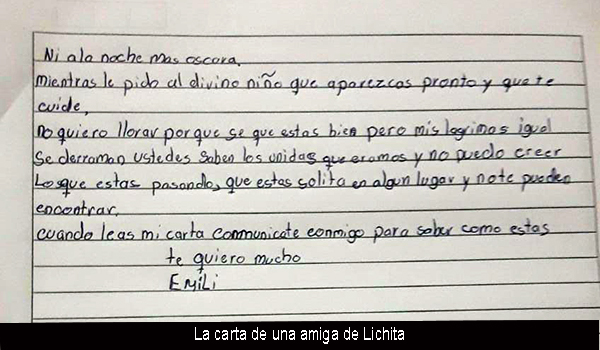 Ni ala noche mas oscora,
mientras le pido al divino niño que aparezcas pronto y que te
cuide,
no quiero llorar porque se que estas bien pero mis lagrimas igual
se derraman ustedes saben los unidas que eramos y no puedo creer
Los que estas pasando, que estas solita en algun lugar y no te pueden
encontrar,
cuando leas mi carta communicate conmigo para saber como estas
te quiero mucho
EMiLi
La carta de una amiga de Lichita